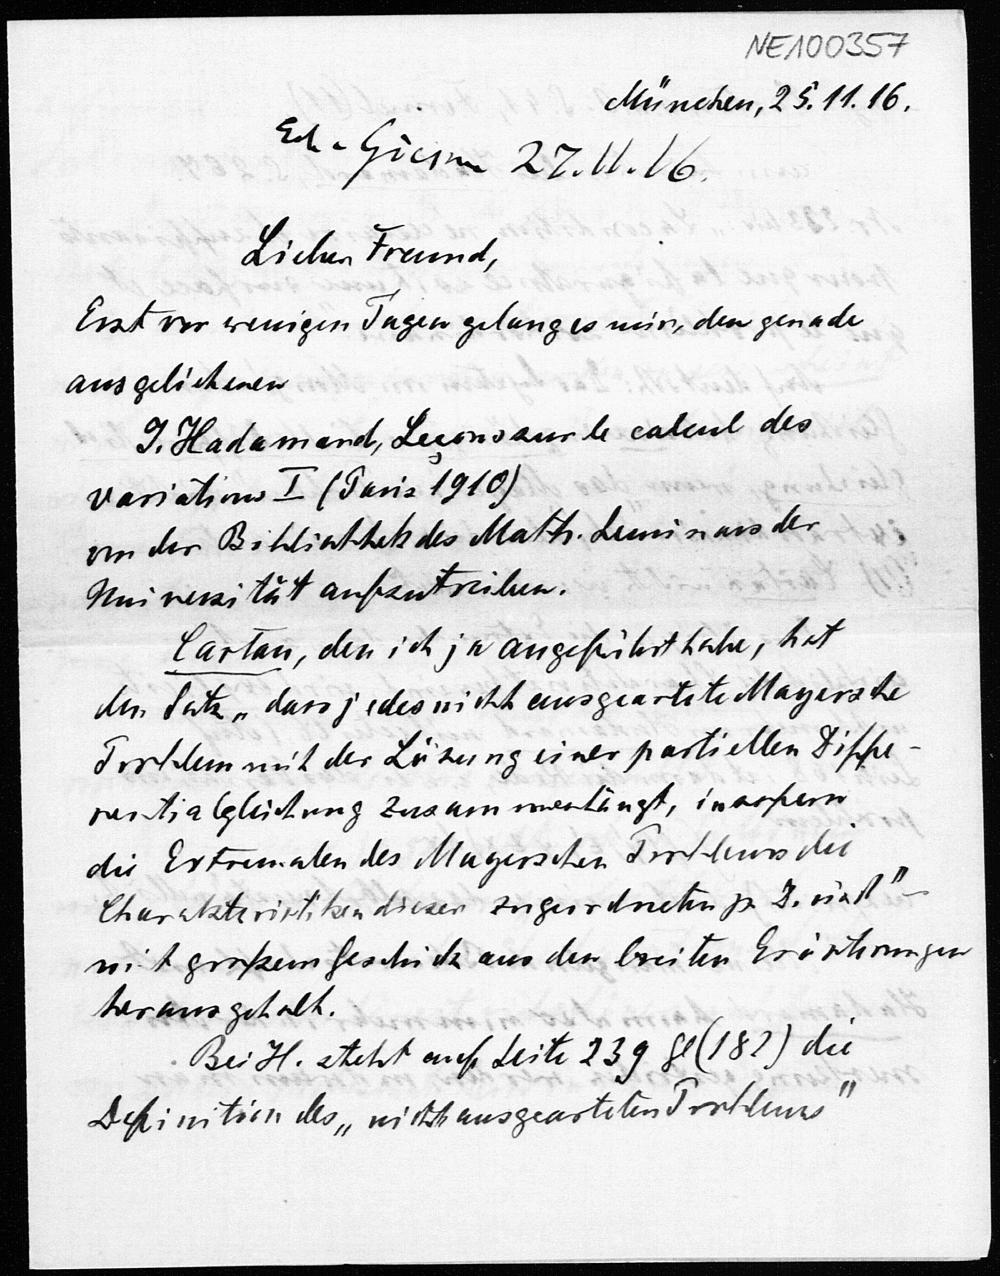 NE100357
München, 25.11.16.
27.11.16.
Lieber Freund,
Erst vor wenigen Tagen gelang es mir, den gerade
ausgeliehenen
J. Hadamard, Leçons sur le calcul des
variations I (Paris 1910)
von der Bibliothek des Math. Seminars der
Universität aufzutreiben.
Cartan, den ich ja angeführt habe, hat
den Satz „dass jedes nicht ausgeartete Mayersche
Problem mit der Lösung einer partiellen Diffe-
rentialgleichung zusammenhängt, insofern
die Extremalen des Mayerschen Problems die
Charakteristiken dieser zugeordneten p. D. sind" –
mit großem Geschick aus den breiten Erörterungen
herausgeholt.
Bei H. steht auf Seite 239 Gl (182) die
Definition des „nichtausgearteten Problems"